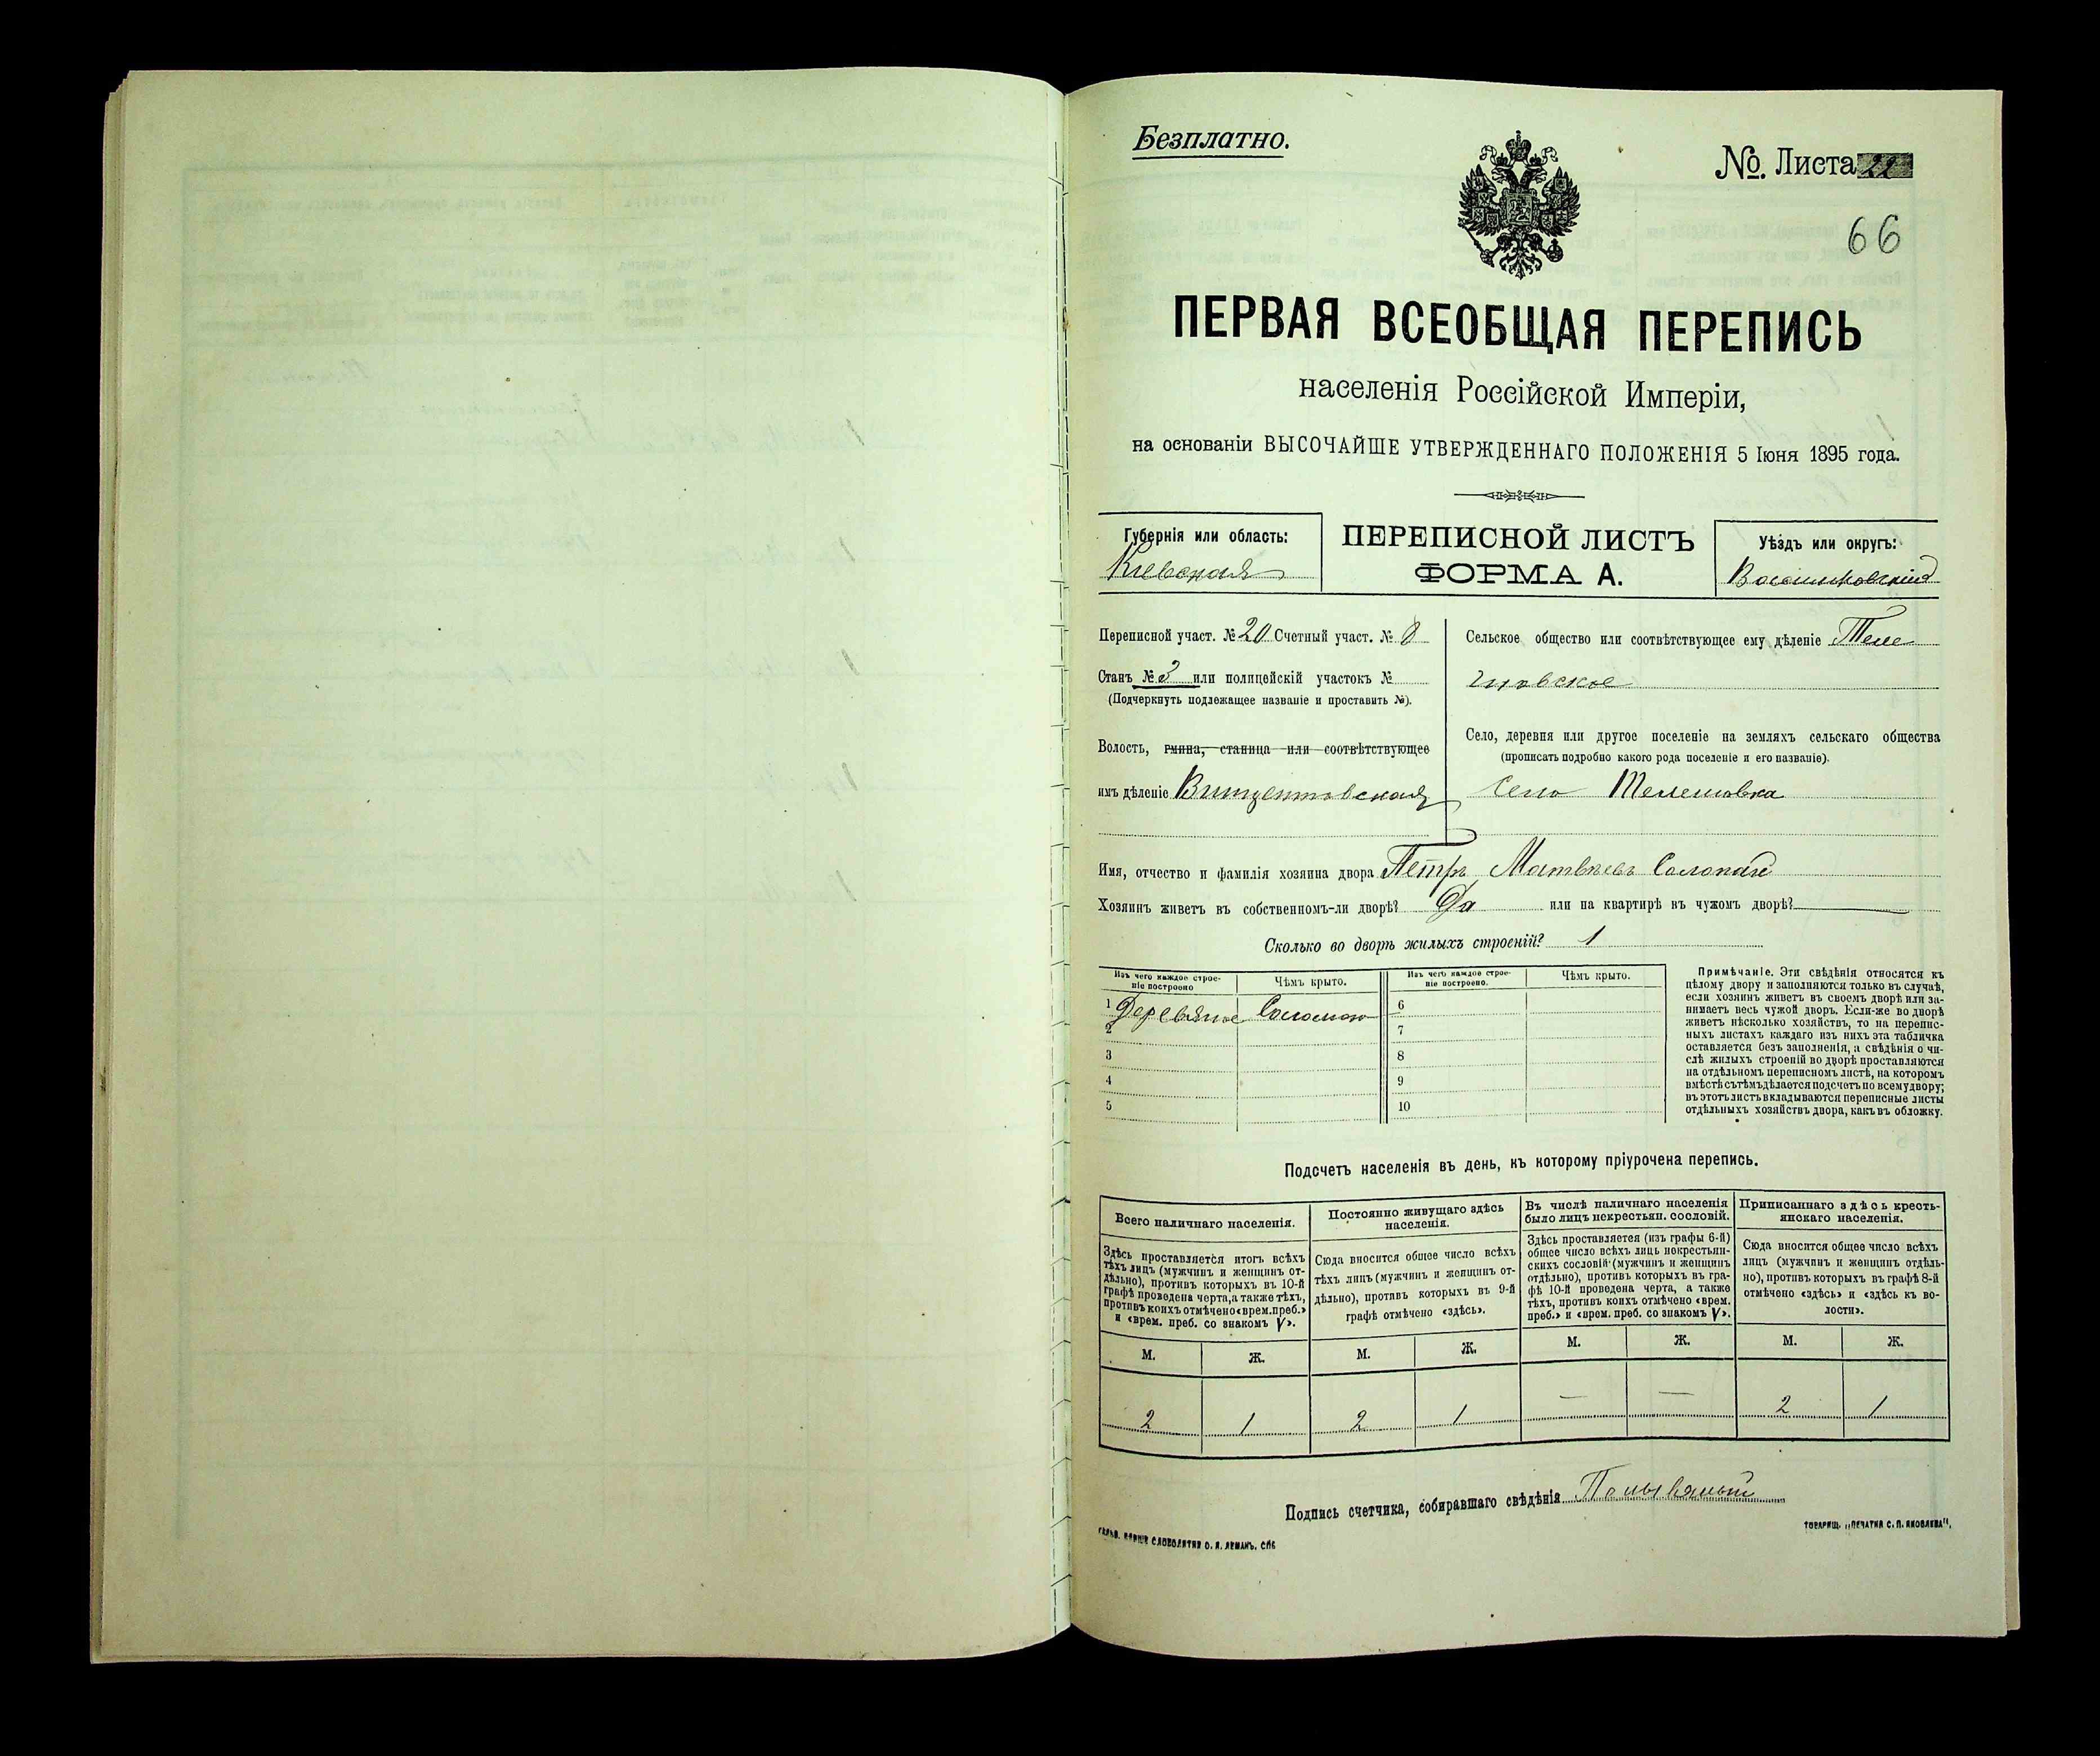 Безплатно.
№. Листа 22
66
ПЕРВАЯ ВСЕОБЩАЯ ПЕРЕПИСЬ
населенія Россійской Имперіи,
на основаніи ВЫСОЧАЙШЕ УТВЕРЖДЕННАГО ПОЛОЖЕНІЯ 5 Іюня 1895 года.
Губернія или область:
Кіевская
ПЕРЕПИСНОЙ ЛИСТЪ
ФОРМА А.
Уѣздъ или округъ:
Васильковскій
Переписной участ. № 20 Счетный участ. № 8
Станъ № 3 или полицейскій участокъ №
(Подчеркнуть подлежащее названіе и проставить №).
Волость, гмина, станица или соотвѣтствующее
имъ дѣленіе Винцентовская
Сельское общество или соотвѣтствующее ему дѣленіе Теле
шовское
Село, деревня или другое поселеніе на земляхъ сельскаго общества
(прописать подробно какого рода поселеніе и его названіе).
Село Телешовка
Имя, отчество и фамилія хозяина двора Петръ Матвѣевъ Солопай
Хозяинъ живетъ въ собственномъ-ли дворѣ? Да или на квартирѣ въ чужомъ дворѣ?
Сколько во дворѣ жилыхъ строеній? 1
Изъ чего каждое строе-
ніе построено
Чѣмъ крыто.
Изъ чего каждое строе-
ніе построено.
Чѣмъ крыто.
1 Деревяное Соломою
2
3
4
5
6
7
8
9
10
Примѣчаніе. Эти свѣдѣнія относятся къ
цѣлому двору и заполняются только въ случаѣ,
если хозяинъ живетъ въ своемъ дворѣ или за-
нимаетъ весь чужой дворъ. Если-же во дворѣ
живетъ нѣсколько хозяйствъ, то на перепис-
ныхъ листахъ каждаго изъ нихъ эта табличка
оставляется безъ заполненія, а свѣдѣнія о чи-
слѣ жилыхъ строеній во дворѣ проставляются
на отдѣльномъ переписномъ листѣ, на которомъ
вмѣстѣ съ тѣмъ дѣлается подсчетъ по всему двору;
въ этотъ листъ вкладываются переписные листы
отдѣльныхъ хозяйствъ двора, какъ въ обложку.
Подсчетъ населенія въ день, къ которому пріурочена перепись.
Всего наличнаго населенія.
Здѣсь проставляется итогъ всѣхъ
тѣхъ лицъ (мужчинъ и женщинъ от-
дѣльно), противъ которыхъ въ 10-й
графѣ проведена черта, а также тѣхъ,
противъ коихъ отмѣчено «врем. преб.»
и «врем. преб. со знакомъ V».
Постоянно живущаго здѣсь
населенія.
Сюда вносится общее число всѣхъ
тѣхъ лицъ (мужчинъ и женщинъ от-
дѣльно), противъ которыхъ въ 9-й
графѣ отмѣчено «здѣсь».
Въ числѣ наличнаго населенія
было лицъ некрестьян. сословій.
Здѣсь проставляется (изъ графы 6-й)
общее число всѣхъ лицъ некрестьян-
скихъ сословій (мужчинъ и женщинъ
отдѣльно), противъ которыхъ въ гра-
фѣ 10-й проведена черта, а также
тѣхъ, противъ коихъ отмѣчено «врем.
преб.» и «врем. преб. со знакомъ V».
Приписаннаго здѣсь кресть-
янскаго населенія.
Сюда вносится общее число всѣхъ
лицъ (мужчинъ и женщинъ отдѣль-
но), противъ которыхъ въ графѣ 8-й
отмѣчено «здѣсь» и «здѣсь къ во-
лости».
М. Ж. М. Ж. М. Ж. М. Ж.
2 1 2 1 — — 2 1
Подпись счетчика, собиравшаго свѣдѣнія
СЛОВОЛИТНЯ О. И. ЛЕМАНЪ. СПБ
ТОВАРИЩ. „ПЕЧАТНЯ С. П. ЯКОВЛЕВА“.